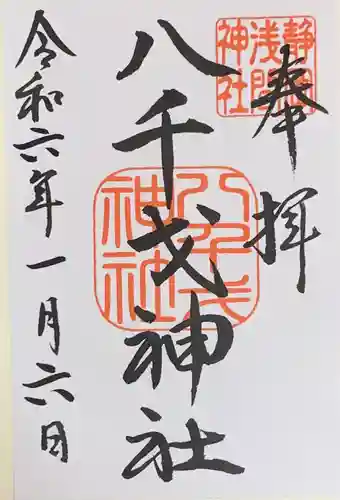 奉拝
静岡浅間神社
八千戈神社
八千戈神社
令和六年一月六日